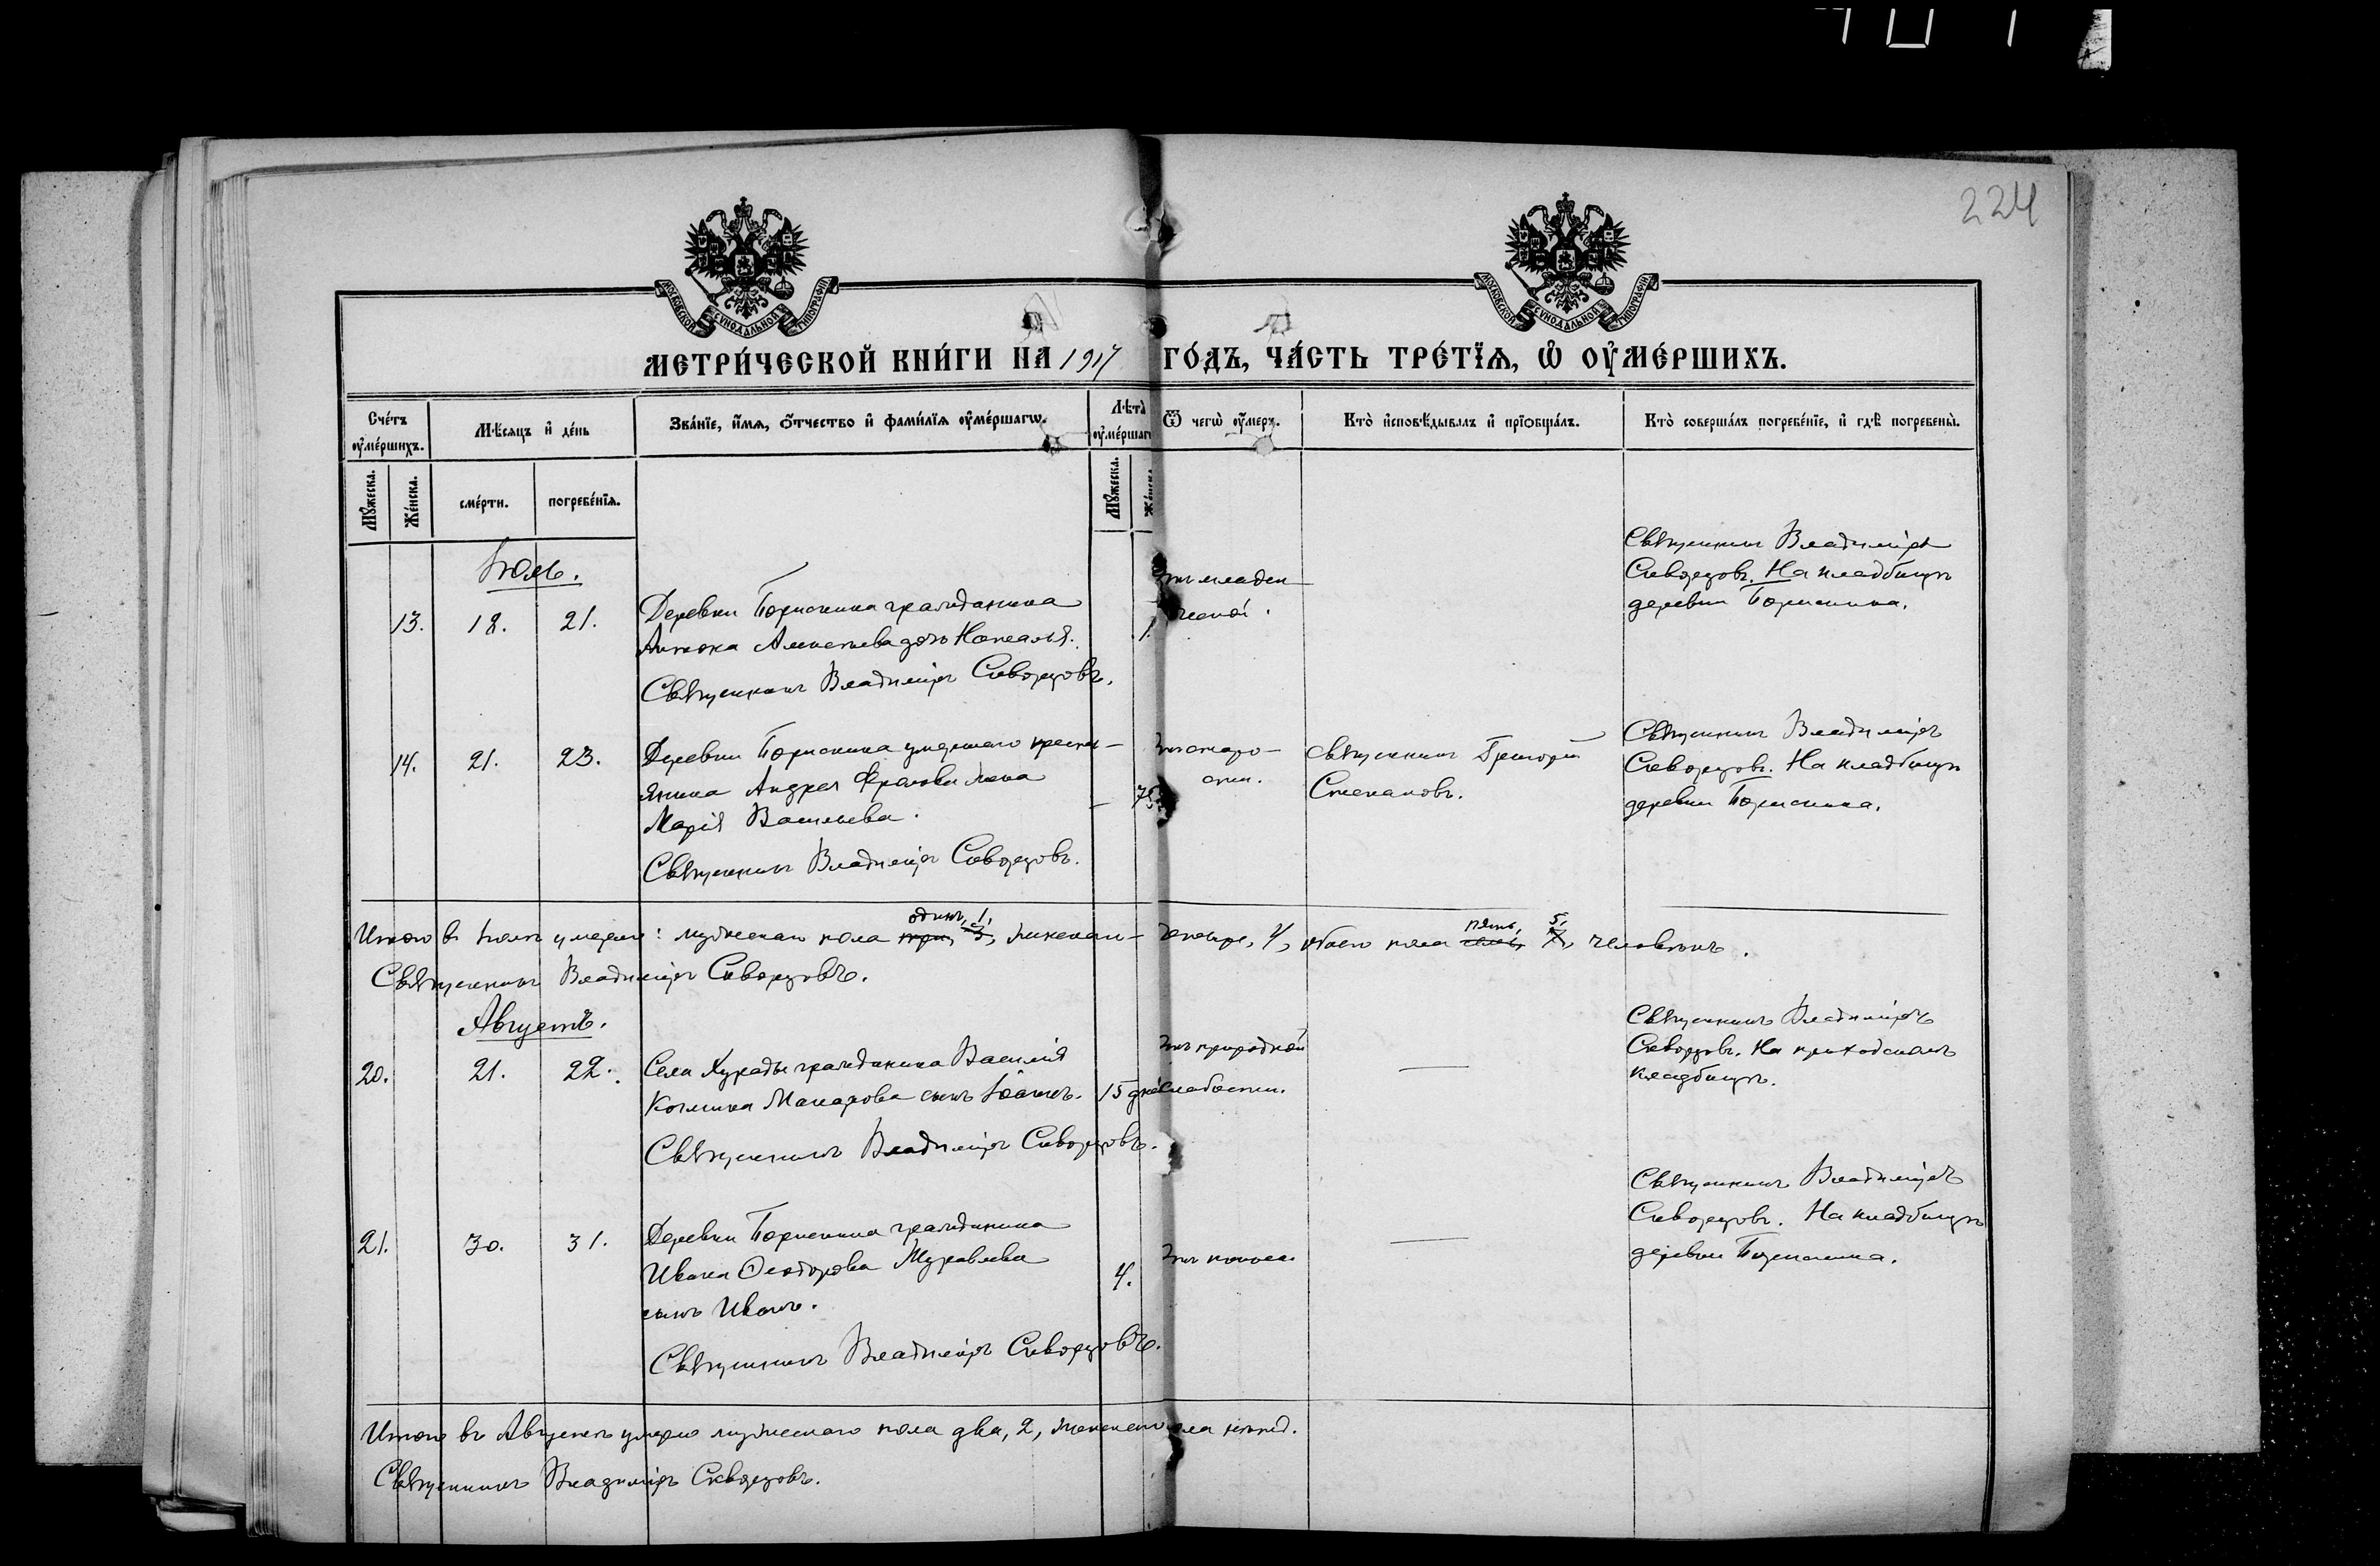 224
МОСКОВСКОЙ СѴНОДАЛЬНОЙ ТИПОГРАФІИ
МОСКОВСКОЙ СѴНОДАЛЬНОЙ ТИПОГРАФІИ
МЕТРИ́ЧЕСКОЙ КНИ́ГИ НА 1917 ГО́ДЪ, ЧА́СТЬ ТРЕ́ТЇѦ, Ѡ҆ ОУ҆МЕ́РШИХЪ.
Сче́тъ оу҆ме́ршихъ.
Мѣ́сяцъ и҆ де́нь
Зва́нїе, и҆́мѧ, ѻ҆́тчество и҆ фамилїѧ оу҆ме́ршагѡ.
Лѣта̀ оу҆ме́ршаг
Ѿ чегѡ̀ оу҆́меръ.
Кто̀ и҆сповѣ́дывалъ и҆ прїѡбща́лъ.
Кто̀ соверша́лъ погребе́нїе, и҆ гдѣ̀ погребены̀.
Мꙋ́жеска.
Же́нска.
сме́рти.
погребе́нїѧ.
Мꙋ́жеска.
Же́нска
Іюль.
13.
18.
21.
Деревни Борискина гражданина
Антона Алексѣева дочь Наталія.
Священникъ Владиміръ Скворцовъ.
1.
Отъ младен
ческой.
Священникъ Владиміръ
Скворцовъ. На кладбищѣ
деревни Борискина.
14.
21.
23.
Деревни Борискина умершаго кресть-
янина Андрея Фролова жена
Марія Васильева.
Священникъ Владиміръ Скворцовъ.
–
75.
Отъ старо-
сти.
Священникъ Григорій
Степановъ.
Священникъ Владиміръ
Скворцовъ. На кладбищѣ
деревни Борискина.
одинъ, 1,
пять, 5,
Итого въ Іюлѣ умерло: мужескаго пола три, 3, женскаго- четыре, 4, обоего пола семь, 7, человѣкъ.
Священникъ Владиміръ Скворцовъ.
Августъ.
20.
21.
22.
Села Хурады гражданина Василія
Козмина Макарова сынъ Іоаннъ.
Священникъ Владиміръ Скворцовъ.
15 дне
Отъ природной
слабости.
Священникъ Владиміръ
Скворцовъ. На приходскомъ
кладбищѣ.
21.
30.
31.
Деревни Борискина гражданина
Ивана Ѳеодорова Журавлева
сынъ Иванъ.
Священникъ Владиміръ Скворцовъ.
4.
Отъ поноса
Священникъ Владиміръ
Скворцовъ. На кладбищѣ
деревни Борискина.
Итого въ Августѣ умерло мужескаго пола два, 2, женскаго пола
Священникъ Владиміръ Скворцовъ.